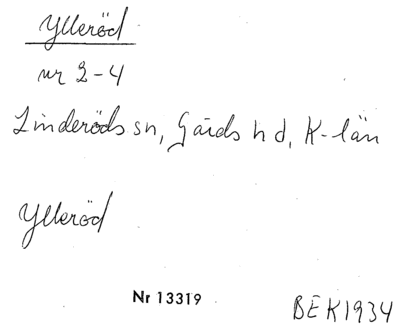 Ylleröd
nr 2-4
Linderöds sn, Gärds hd, K-län
Ylleröd
Nr 13319
BEK1934